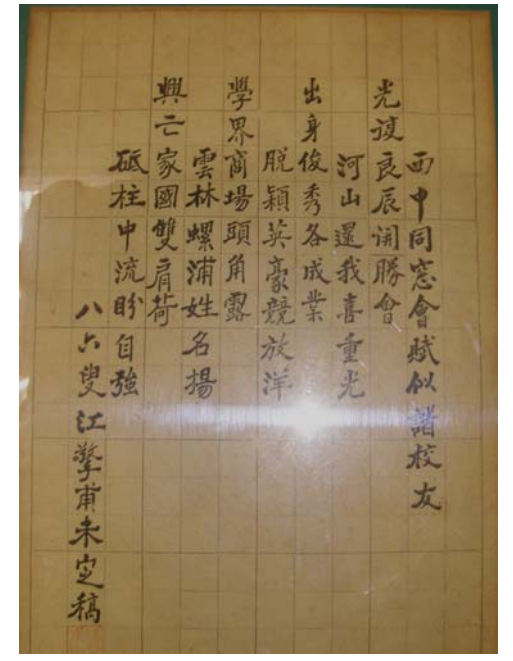 西中同窓會賦似諸校友
光復良辰開勝會
河山還我喜重光
出身俊秀各成業
脱穎英豪競放洋
學界商場頭角露
雲林螺浦姓名揚
興亡家國雙肩荷
砥柱中流盼自強
八六叟江擎甫未定稿